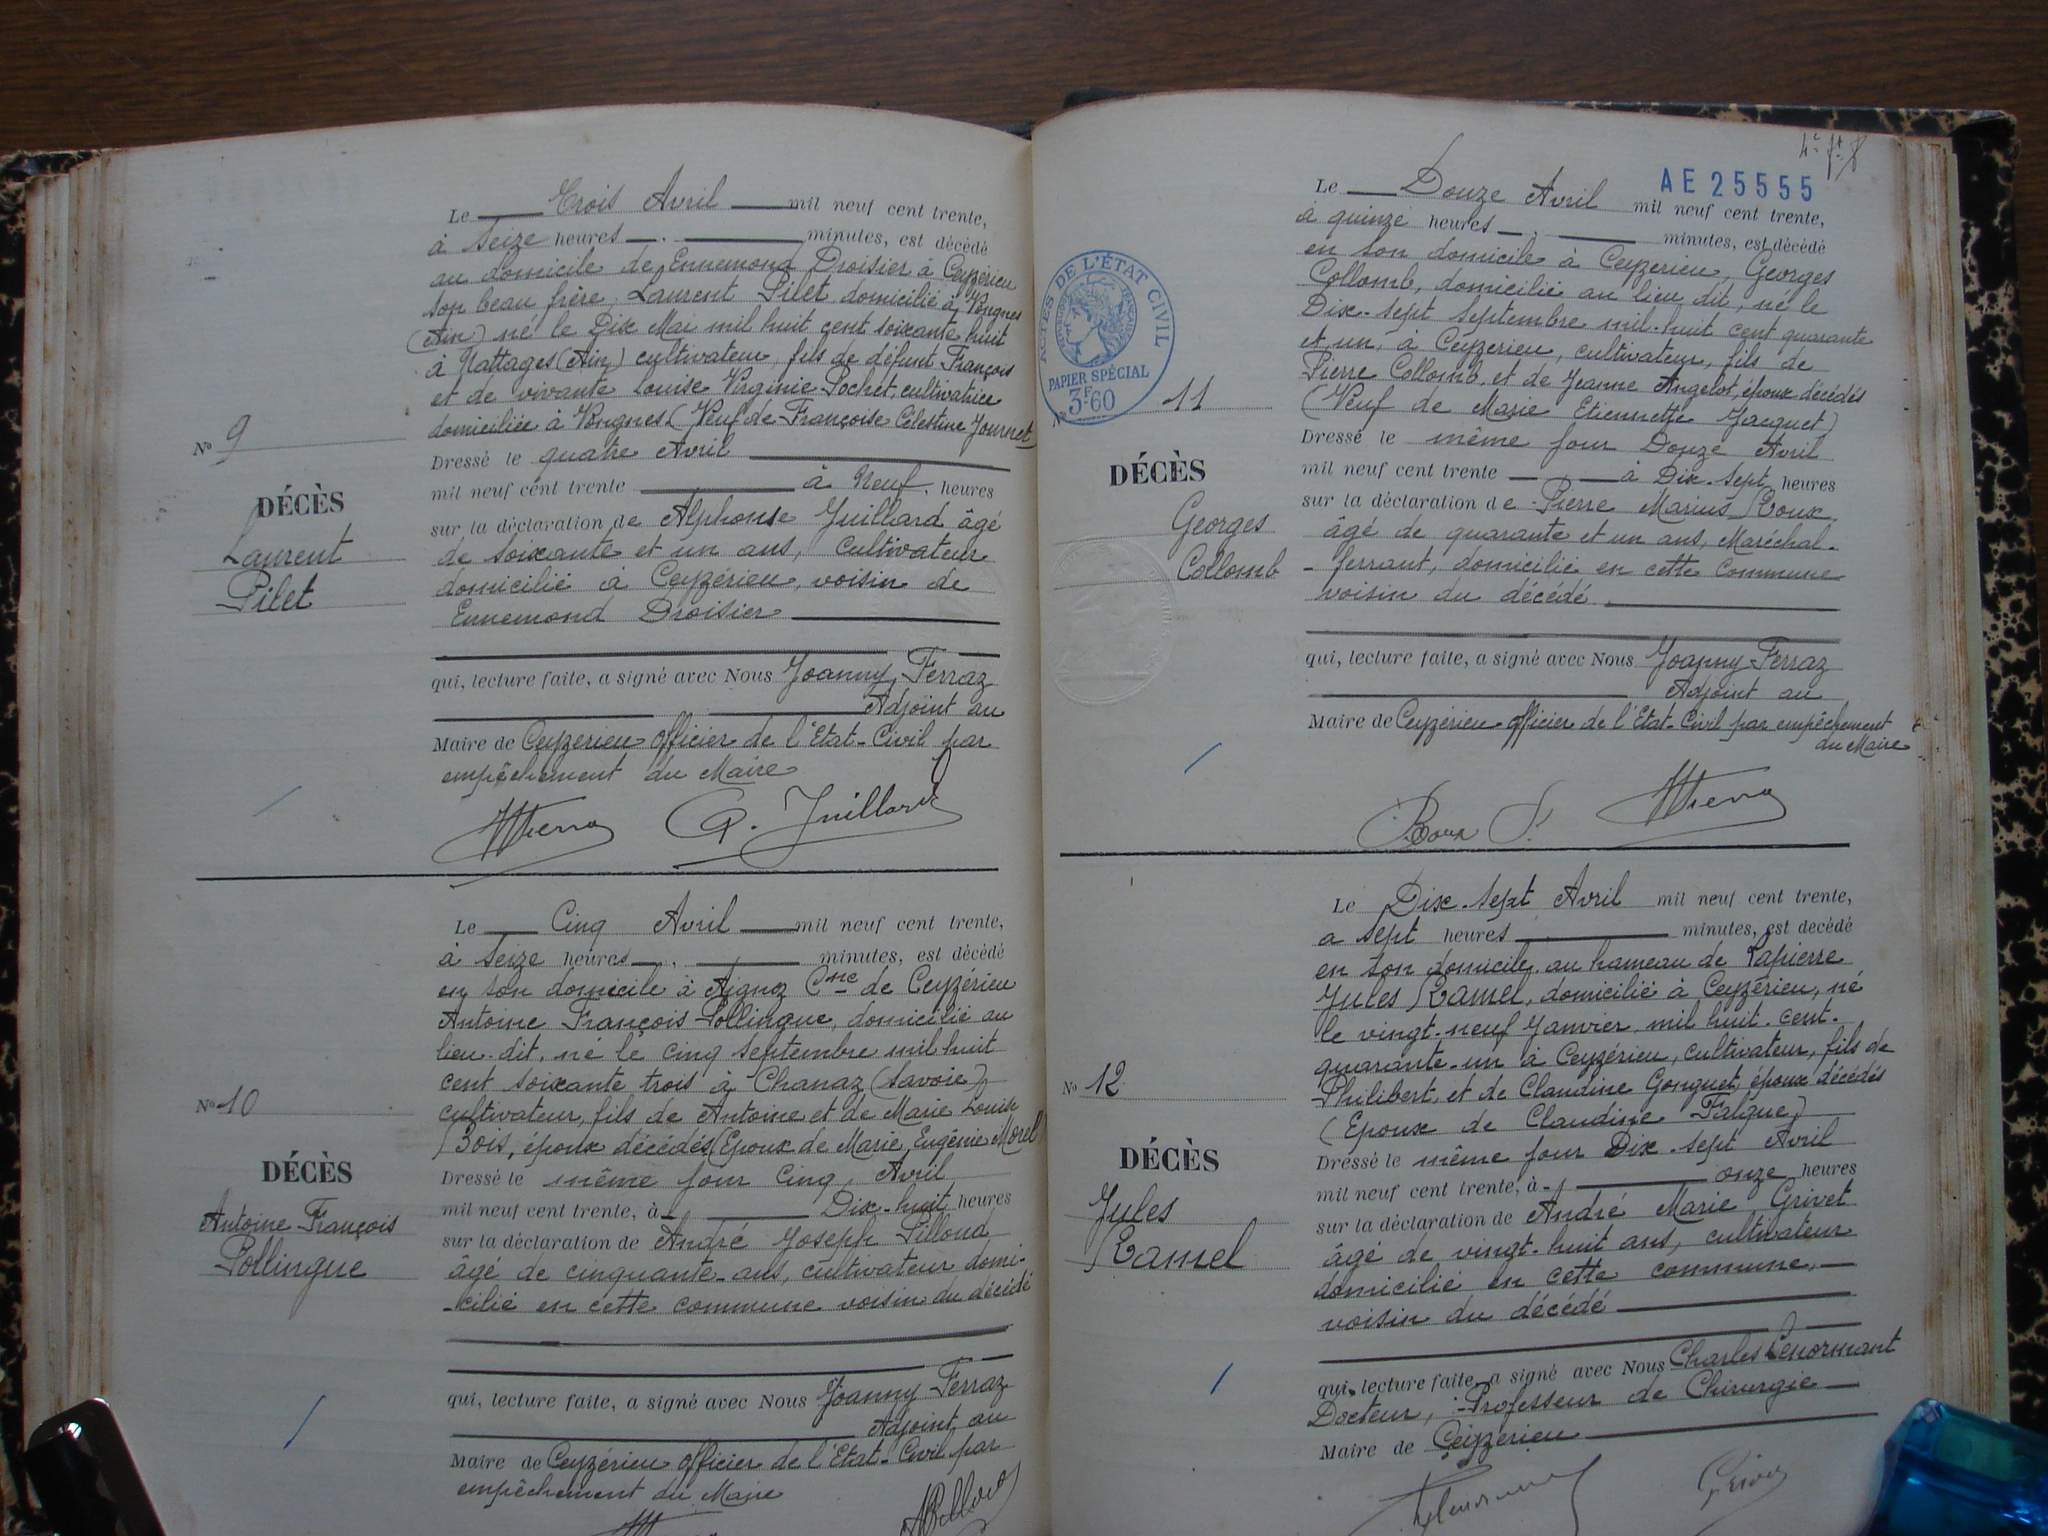 Le Trois Avril mil neuf cent trente,
à Seize heures minutes, est décédé
au domicile de Ennemond Droisier à Ceyzérieu
son beau frère, Laurent Pilet domicilié à Vongnes
(Ain) né le Dix Mai mil huit cent soixante huit
à Nattages (Ain) cultivateur, fils de défunt François
et de vivante Louise Virginie Pochet, cultivatrice
domiciliée à Vongnes (Veuf de Françoise Célestine Journet)
N° 9
DÉCÈS
Laurent
Pilet
Dressé le quatre Avril
mil neuf cent trente à Neuf heures
sur la déclaration de Alphonse Juillard âgé
de soixante et un ans, cultivateur
domicilié à Ceyzérieu, voisin de
Ennemond Droisier
qui, lecture faite, a signé avec Nous Joanny Ferraz
Adjoint au
Maire de Ceyzérieu Officier de l'Etat-Civil par
empêchement du Maire
A. Juillard
Le Cinq Avril mil neuf cent trente,
à Seize heures minutes, est décédé
en son domicile à Aignoz Cne de Ceyzérieu
Antoine François Pollingue, domicilié au
lieu-dit, né le cinq septembre mil huit
cent soixante trois à Chanaz (Savoie)
cultivateur, fils de Antoine et de Marie Louise
Bois, époux décédés (Epoux de Marie Eugénie Morel)
N° 10
DÉCÈS
Antoine François
Pollingue
Dressé le même jour cinq Avril
mil neuf cent trente, à Dix-huit heures
sur la déclaration de André Joseph Pillond
âgé de cinquante ans, cultivateur domi-
-cilié en cette commune voisin du décédé
qui, lecture faite, a signé avec Nous Joanny Ferraz
Adjoint au
Maire de Ceyzérieu Officier de l'Etat-Civil par
empêchement du Maire
AE 25555
Le Douze Avril mil neuf cent trente,
à quinze heures minutes, est décédé
en son domicile à Ceyzerieu, Georges
Collomb, domicilié au lieu dit, né le
Dix-sept septembre mil-huit cent quarante
et un, à Ceyzerieu, cultivateur, fils de
Pierre Collomb et de Jeanne Angelot, époux décédés
(Veuf de Marie Etiennette Jacquet)
ACTES DE L'ÉTAT CIVIL
PAPIER SPÉCIAL
3F60
N° 11
DÉCÈS
Georges
Collomb
Dressé le même jour Douze Avril
mil neuf cent trente à Dix-sept heures
sur la déclaration de Pierre Marius Roux
âgé de quarante et un ans, Maréchal-
-ferrant, domicilié en cette Commune
voisin du décédé
qui, lecture faite, a signé avec Nous Joanny Ferraz
Adjoint au
Maire de Ceyzérieu Officier de l'Etat-Civil par empêchement
du Maire
Roux P.
Le Dix-sept Avril mil neuf cent trente,
a sept heures minutes, est decédé
en son domicile au hameau de Lapierre
Jules Ramel, domicilié à Ceyzérieu, né
le vingt-neuf Janvier mil huit-cent-
quarante-un à Ceyzérieu, cultivateur, fils de
Philibert, et de Claudine Gonguet, époux décédés
(Epoux de Claudine Falque)
N° 12
DÉCÈS
Jules
Ramel
Dressé le même jour Dix-sept Avril
mil neuf cent trente, à onze heures
sur la déclaration de André Marie Grivet
âgé de vingt-huit ans, cultivateur
domicilié en cette commune,
voisin du décédé
qui, lecture faite, a signé avec Nous Charles Lenormant
Docteur, Professeur de Chirurgie
Maire de Ceyzérieu